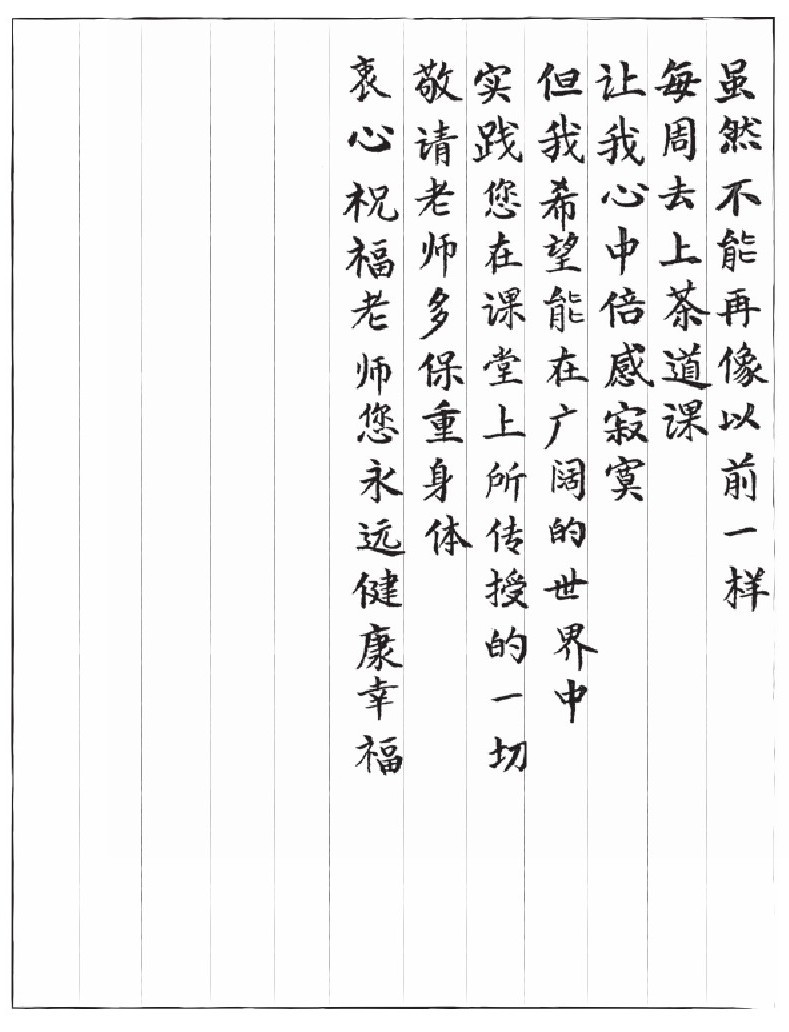 虽然不能再像以前一样
每周去上茶道课
让我心中倍感寂寞
但我希望能在广阔的世界中
实践您在课堂上所传授的一切
敬请老师多保重身体
衷心祝福老师您永远健康幸福